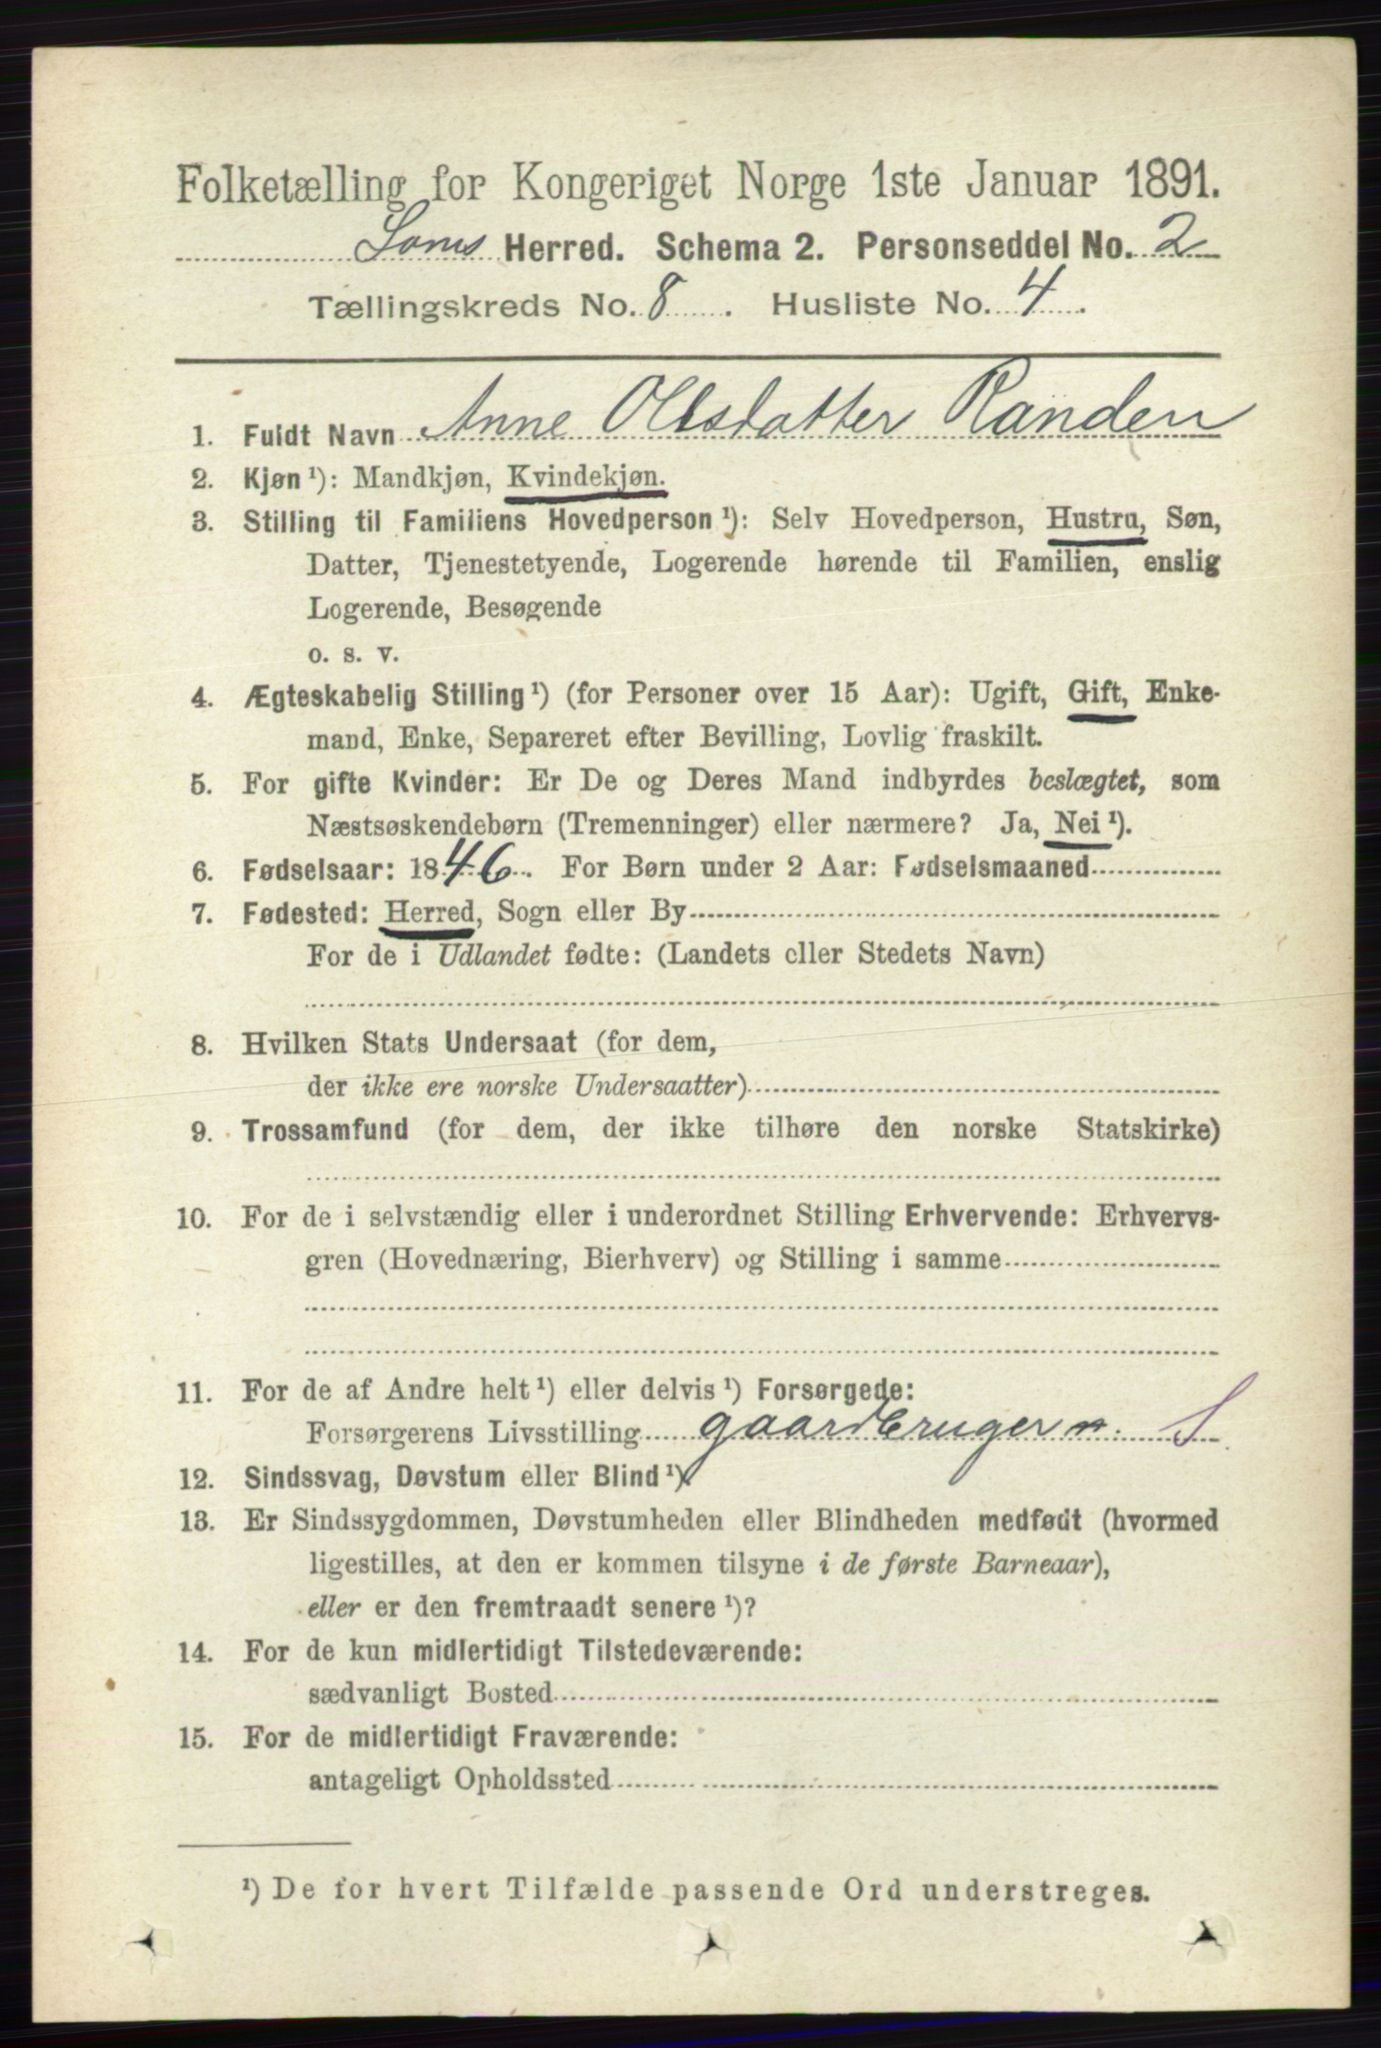 Folketælling for Kongeriget Norge 1ste Januar 1891.
Loms Herred. Schema 2. Personseddel No. 2
Tællingskreds No. 8. Husliste No. 4.
1. Fuldt Navn Anne Olsdatter Randen
2. Kjøn¹): Mandkjøn, Kvindekjøn.
3. Stilling til Familiens Hovedperson¹): Selv Hovedperson, Hustru, Søn,
Datter, Tjenestetyende, Logerende hørende til Familien, enslig
Logerende, Besøgende
o. s. v.
4. Ægteskabelig Stilling¹) (for Personer over 15 Aar): Ugift, Gift, Enke-
mand, Enke, Separeret efter Bevilling, Lovlig fraskilt.
5. For gifte Kvinder: Er De og Deres Mand indbyrdes beslægtet, som
Næstsøskendebørn (Tremenninger) eller nærmere? Ja, Nei¹).
6. Fødselsaar: 1846. For Børn under 2 Aar: Fødselsmaaned
7. Fødested: Herred, Sogn eller By
For de i Udlandet fødte: (Landets eller Stedets Navn)
8. Hvilken Stats Undersaat (for dem,
der ikke ere norske Undersaatter)
9. Trossamfund (for dem, der ikke tilhøre den norske Statskirke)
10. For de i selvstændig eller i underordnet Stilling Erhvervende: Erhvervs-
gren (Hovednæring, Bierhverv) og Stilling i samme
11. For de af Andre helt¹) eller delvis¹) Forsørgede:
Forsørgerens Livsstilling gaardbruger S
12. Sindssvag, Døvstum eller Blind¹).
13. Er Sindssygdommen, Døvstumheden eller Blindheden medfødt (hvormed
ligestilles, at den er kommen tilsyne i de første Barneaar),
eller er den fremtraadt senere¹)?
14. For de kun midlertidigt Tilstedeværende:
sædvanligt Bosted
15. For de midlertidigt Fraværende:
antageligt Opholdssted
¹) De for hvert Tilfælde passende Ord understreges.